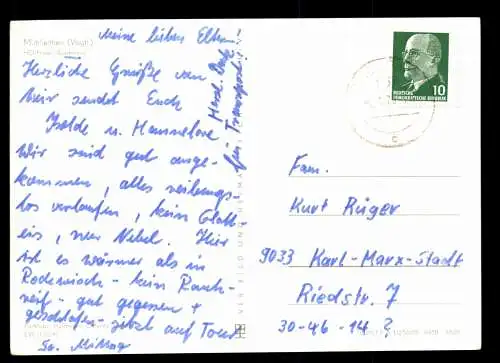 Mühlleithen (Vogtl.)
meine lieben Eltern
Herzliche Grüße von
hier sendet Euch
Isolde u. Hannelore
Wir sind gut ange-
kommen, alles reibungs-
los verlaufen, kein Glatt-
eis, nur Nebel. Hier
ist es wärmer als in
Rodewisch - kein Rauh-
reif - gut gegessen +
geschlafen - jetzt auf Tour
So. Mittag
Herzl. Dank
für Transport!
VER BILD UND HEIMAT
DEUTSCHE
DEMOKRATISCHE REPUBLIK
10
c
Fam.
Kurt Rüger
9033 Karl-Marx-Stadt
Riedstr. 7
30-46-14 ?